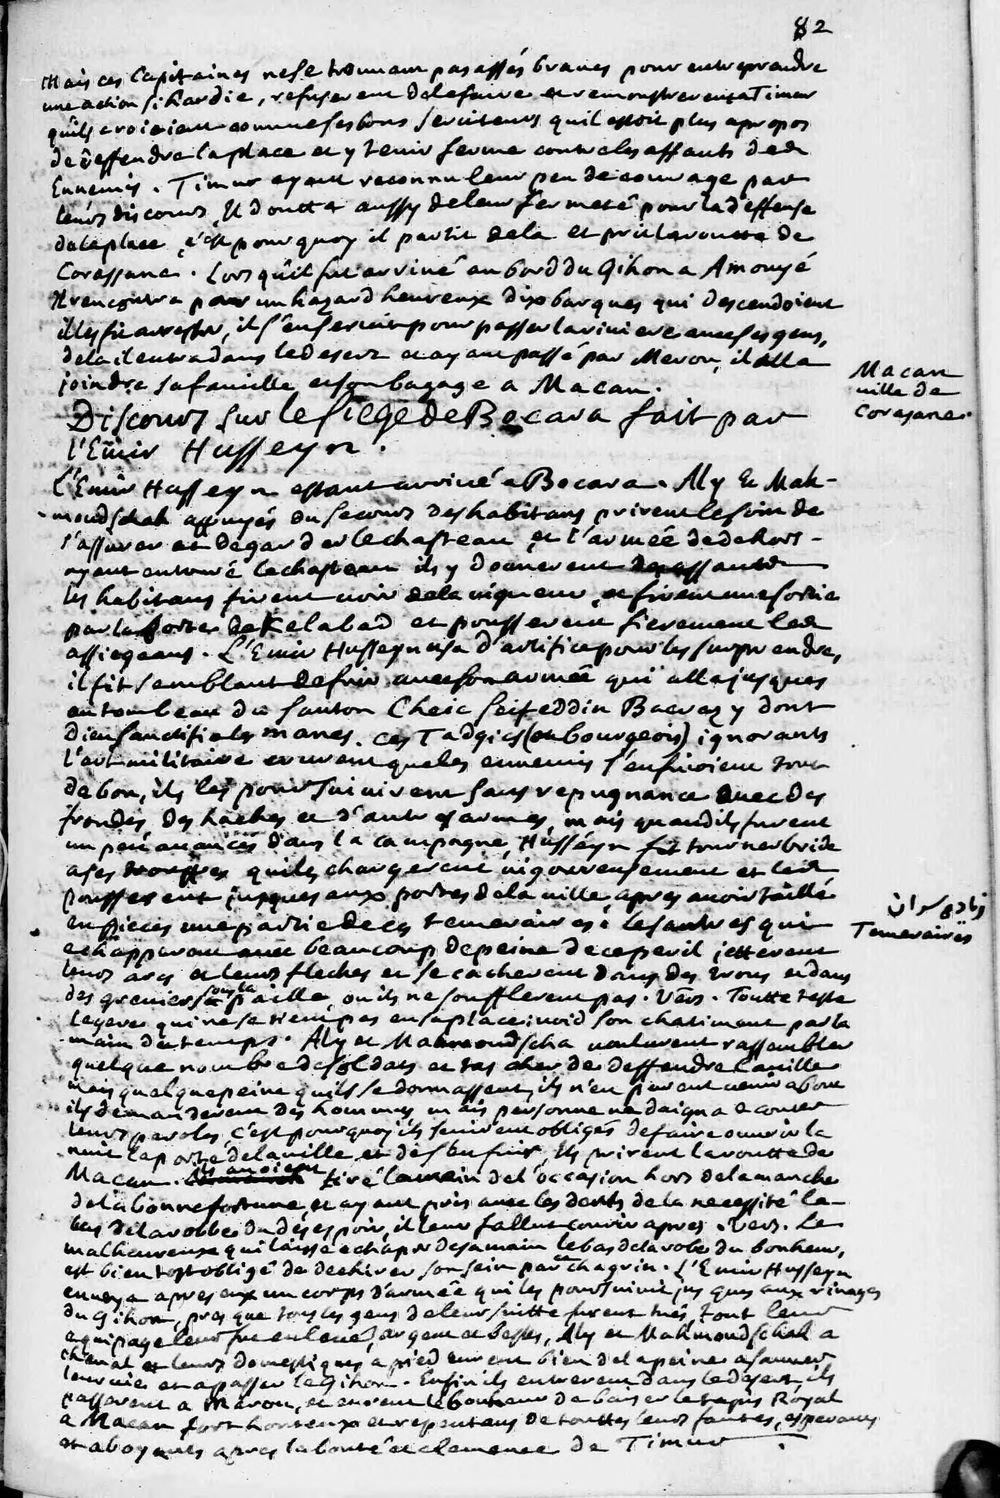 82
Mais ces Capitaines ne se trouuant pas assés braues pour entreprendre
une action si hardie, refuserent de le faire et remonstrerent a Timur
qu'ils croioient comme ses bons seruiteurs quil estoit plus apropos
de deffendre la place et y tenir ferme contre les assauts des
Ennemis. Timur ayant reconnu leur peu de courage par
leurs discours, Il doutta aussy de leur fermeté pour la deffense
de la place, c'est pourquoy il partit de la et prit la routte de
Corassane. Lors qu'il fut arriué au bord du Gihon a Amouyé
Il rencontra par un hazard heureux dix barques qui descendoient
il les fit arrester, il s'en seruit pour passer la riuiere auec ses gens,
de la il entra dans le desert et ayant passé par Merou, il alla
joindre sa famille et son bagage a Macan.
Macan
uille de
Corasane.
Discours sur le siege de Bocara fait par
l'Emir Husseyn.
L'Emir Husseyn estant arriué a Bocara. Aly et Mah-
moudschah appuyés du secours des habitans prirent le soin de
s'assurer et de garder le chasteau, et l'armée de dehors
ayant entouré le chasteau ils y donnerent des assauts
les habitans firent uoir de la uigueur, et firent une sortie
par la porte de Kelabad et pousserent fierement les
assiegeans. L'Emir Husseyn usa d'artifice pour les surprendre,
il fit semblant de fuir auec son armée qui alla jusques
au tombeau du santon Cheic Seifeddin Bacrazy dont
Dieu sanctifie les manes. Ces Tadgics (ou bourgeois) ignorants
l'art militaire crurent que les ennemis s'enfuioient tout
de bon, ils les poursuiuirent sans repugnance auec des
frondes des haches et d'autres armes, mais quand ils furent
un peu auancés dans la campagne, Husséyn fit tourner bride
a ses trouppes qui les chargerent uigoureusement et les
pousserent jusques aux portes de la uille apres auoir taillé
en pieces une partie de ces temeraires: les autres qui
زیاده سران
Temeraires
echapperent auec beaucoup de peine de ce peril jetterent
leurs arcs et leurs fleches et se cacherent dans des trous et dans
des greniers sous la paille, ou ils ne soufflerent pas. Vers. Toutte teste
legere qui ne se tient pas en sa place: uoid son chatiment par la
main du temps. Aly et Mahmoudscha uoulurent rassembler
quelque nombre de soldats et tascher de deffendre la uille
mais quelque peine qu'ils se donnassent, ils n'en purent uenir about
ils demanderent des hommes, mais personne ne daigna ecouter
leurs paroles, c'est pourquoy ils se uirent obligés de faire ouurir la
nuit la porte de la uille et des'enfuir, Ils prirent la routte de
Macan. Ils auoient tiré la main de l'occasion hors de la manche
de la bonne fortune, et ayant pris auec les dents de la necessité le
bas de la robbe du desespoir, il leur fallut courir apres. Vers. Le
malheureux qui laisse echaper de sa main le bas de la robe du bonheur,
est bientost obligé de dechirer son sein par le chagrin. L'Emir Husseyn
enuoya apres eux un corps d'armée qui les poursuiuit jusques aux riuages
du Gihon, presque tous les gens de leur suitte furent tués, tout leur
equipage leur fut enleué, argent et bestes, Aly et Mahmoudschah a
cheual et leurs domestiques a pied eurent bien de la peine a sauuer
leur uie et a passer le Gihon. Enfin ils entrerent dans le desert, ils
passerent a Merou, et eurent le bonheur de baiser le tapis Royal
a Macan fort honteux et repentans de touttes leurs fautes, esperans
et aboyants apres la bonté et clemence de Timur.